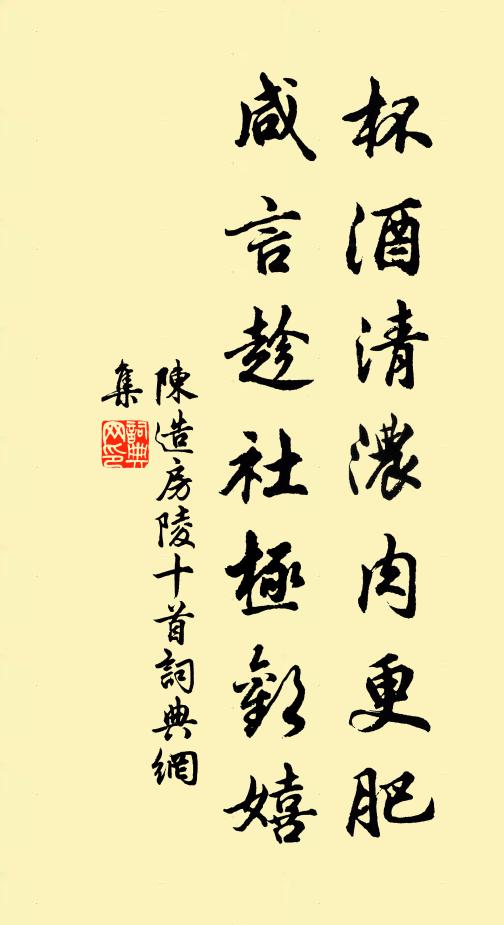 杯酒清濃肉更肥
咸言趁社極歡嬉
陳造房陵十首詞典網
集
詞典網印